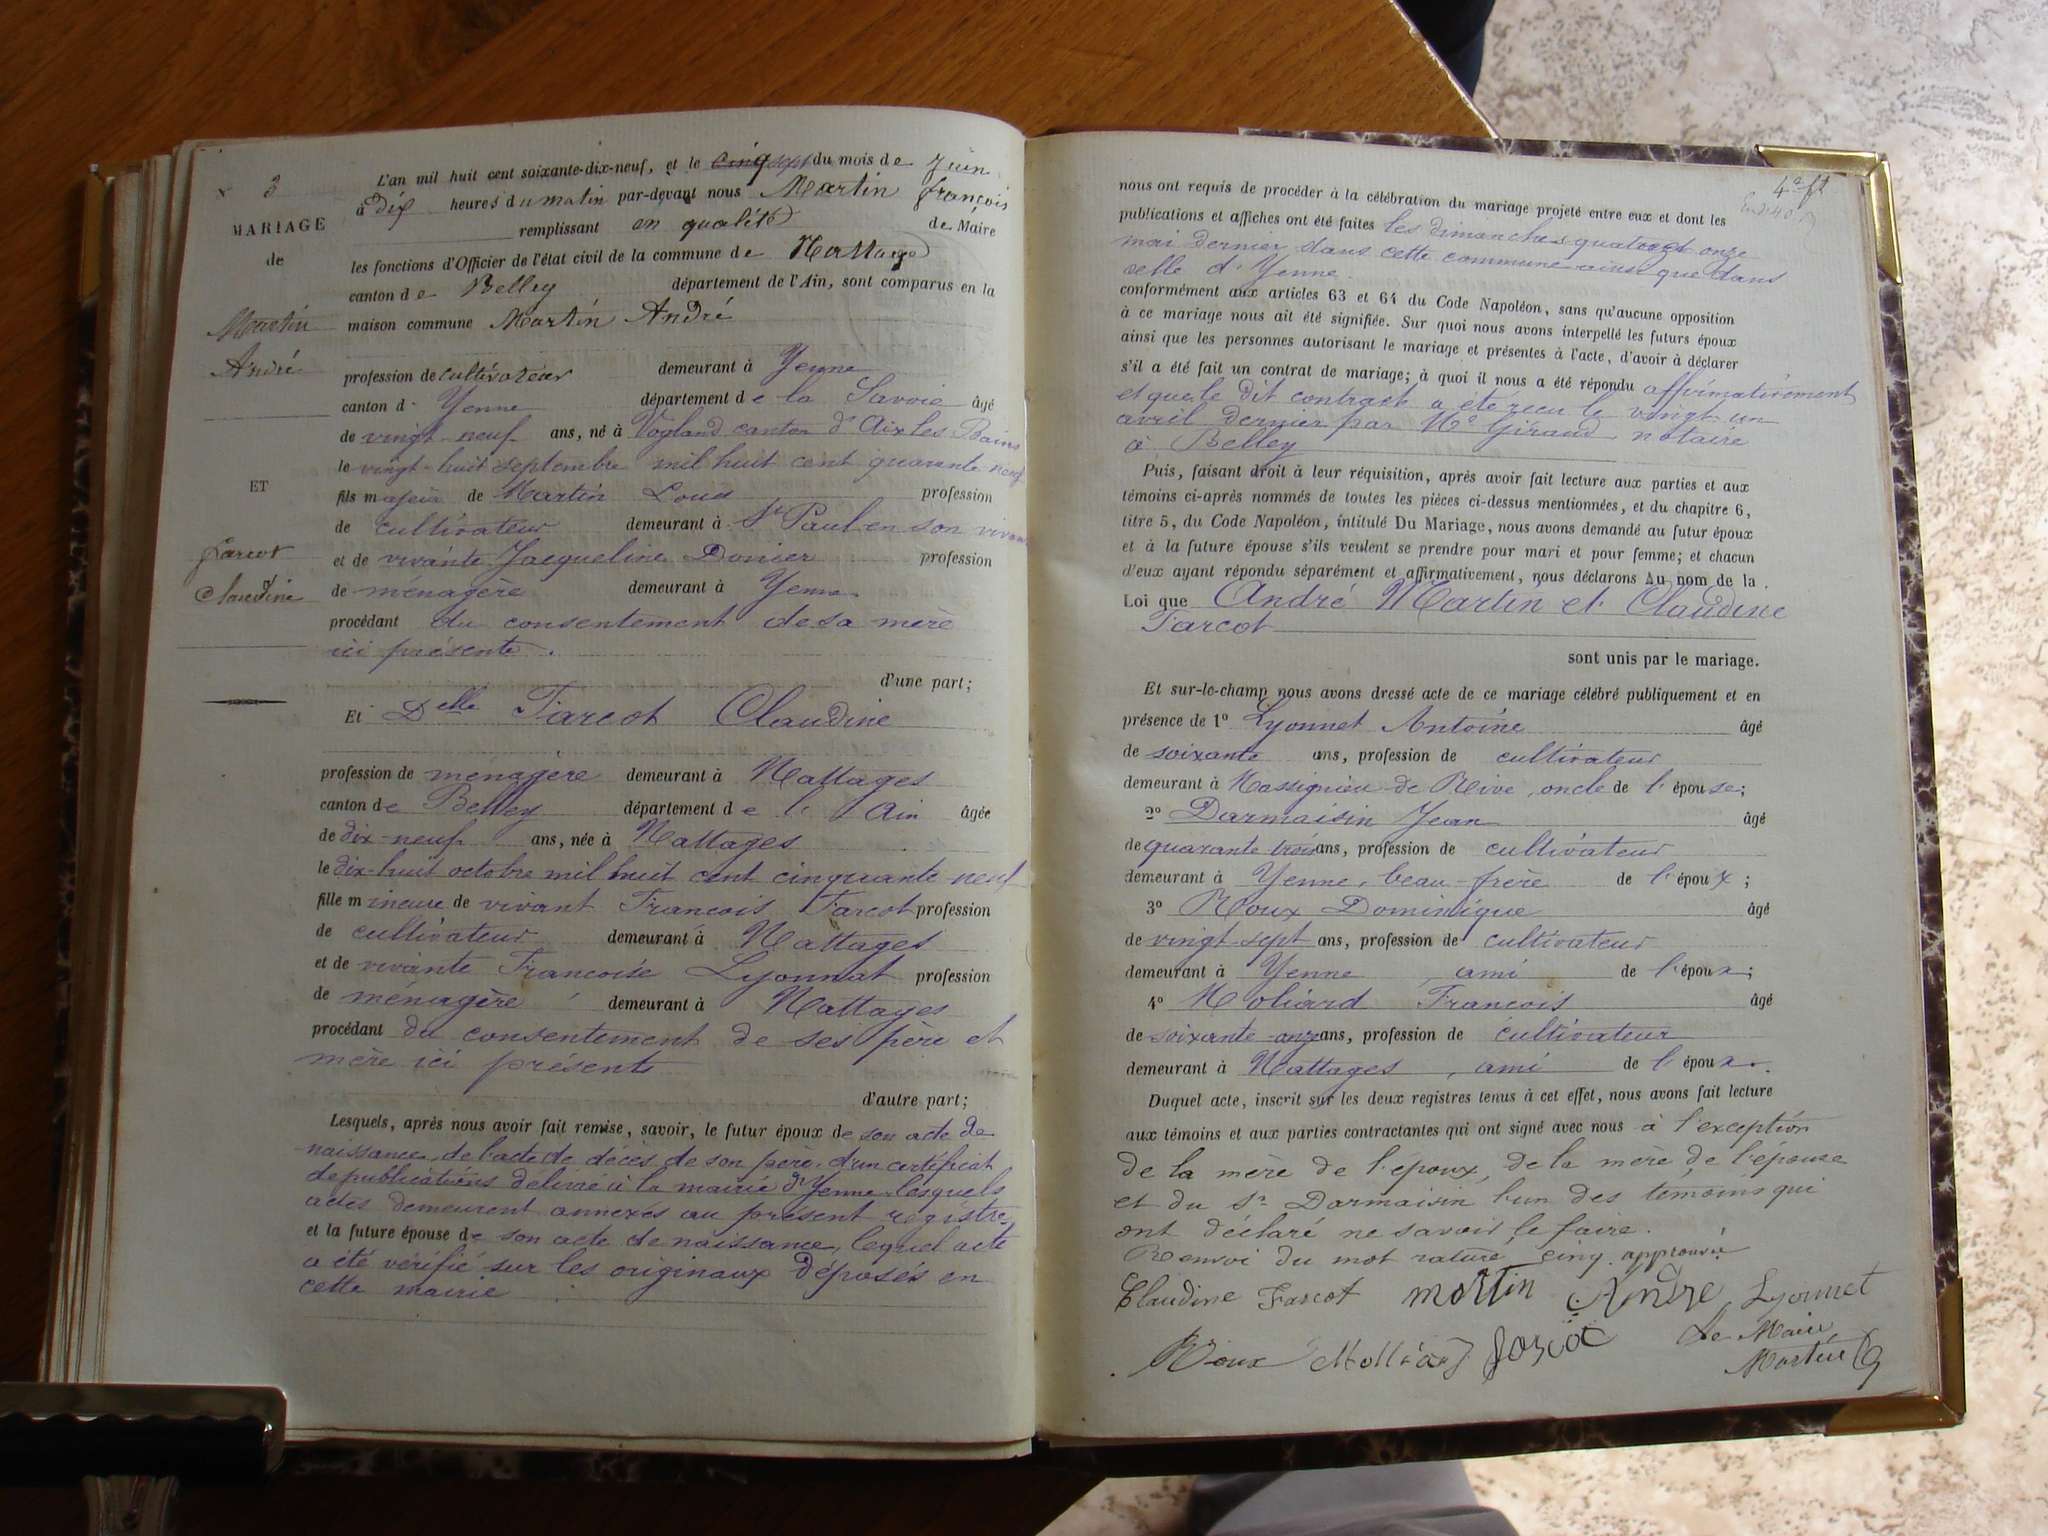 N° 3
MARIAGE
de
Martin
André
ET
Farcot
Claudine
L'an mil huit cent soixante-dix-neuf, et le cinq sept du mois de Juin
à dix heures du matin par-devant nous Martin François
remplissant en qualité de Maire
les fonctions d'Officier de l'état civil de la commune de Nattages
canton de Belley département de l'Ain, sont comparus en la
maison commune Martin André
profession de cultivateur demeurant à Yenne
canton d' Yenne département de la Savoie âgé
de vingt-neuf ans, né à Vogland canton d'Aix les Bains
le vingt-huit septembre mil huit cent quarante neuf
fils majeur de Martin Louis profession
de cultivateur demeurant à St Paul en son vivant
et de vivante Jacqueline Donier profession
de ménagère demeurant à Yenne
procédant du consentement de sa mère
ici présente.
d'une part;
Et Delle Farcot Claudine
profession de ménagère demeurant à Nattages
canton de Belley département de l' Ain âgée
de dix-neuf ans, née à Nattages
le dix-huit octobre mil huit cent cinquante neuf
fille mineure de vivant François Farcot profession
de cultivateur demeurant à Nattages
et de vivante Francoise Lyonnat profession
de ménagère demeurant à Nattages
procédant du consentement de ses père et
mère ici présents
d'autre part;
Lesquels, après nous avoir fait remise, savoir, le futur époux de son acte de
naissance, de l'acte de décès de son père, d'un certificat
de publications délivré à la mairie d'Yenne lesquels
actes demeurent annexés au présent registre,
et la future épouse de son acte de naissance, lequel acte
a été vérifié sur les originaux déposés en
cette mairie
4e ft
nous ont requis de procéder à la célébration du mariage projeté entre eux et dont les
publications et affiches ont été faites les dimanches quatre et onze
mai dernier dans cette commune ainsi que dans
celle d'Yenne
conformément aux articles 63 et 64 du Code Napoléon, sans qu'aucune opposition
à ce mariage nous ait été signifiée. Sur quoi nous avons interpellé les futurs époux
ainsi que les personnes autorisant le mariage et présentes à l'acte, d'avoir à déclarer
s'il a été fait un contrat de mariage; à quoi il nous a été répondu affirmativement
et que le dit contrat a été recu le vingt-un
avril dernier par Me Giraud notaire
à Belley
Puis, faisant droit à leur réquisition, après avoir fait lecture aux parties et aux
témoins ci-après nommés de toutes les pièces ci-dessus mentionnées, et du chapitre 6,
titre 5, du Code Napoléon, intitulé Du Mariage, nous avons demandé au futur époux
et à la future épouse s'ils veulent se prendre pour mari et pour femme; et chacun
d'eux ayant répondu séparément et affirmativement, nous déclarons Au nom de la
Loi que André Martin et Claudine
Farcot
sont unis par le mariage.
Et sur-le-champ nous avons dressé acte de ce mariage célébré publiquement et en
présence de 1° Lyonnet Antoine âgé
de soixante ans, profession de cultivateur
demeurant à Massignieu de Rive, oncle de l'épouse;
2° Darmaisin Jean âgé
de quarante trois ans, profession de cultivateur
demeurant à Yenne, beau-frère de l'époux;
3° Roux Dominique âgé
de vingt sept ans, profession de cultivateur
demeurant à Yenne, ami de l'époux;
4° Moliard Francois âgé
de soixante-onze ans, profession de cultivateur
demeurant à Nattages, ami de l'époux.
Duquel acte, inscrit sur les deux registres tenus à cet effet, nous avons fait lecture
aux témoins et aux parties contractantes qui ont signé avec nous à l'exception
de la mère de l'époux, de la mère de l'épouse
et du Sr Darmaisin l'un des témoins qui
ont déclaré ne savoir le faire.
Renvoi du mot raturé, cinq approuvé
Claudine Farcot Martin André Lyonnet
Roux Molliard Farcot Le Maire
Martin